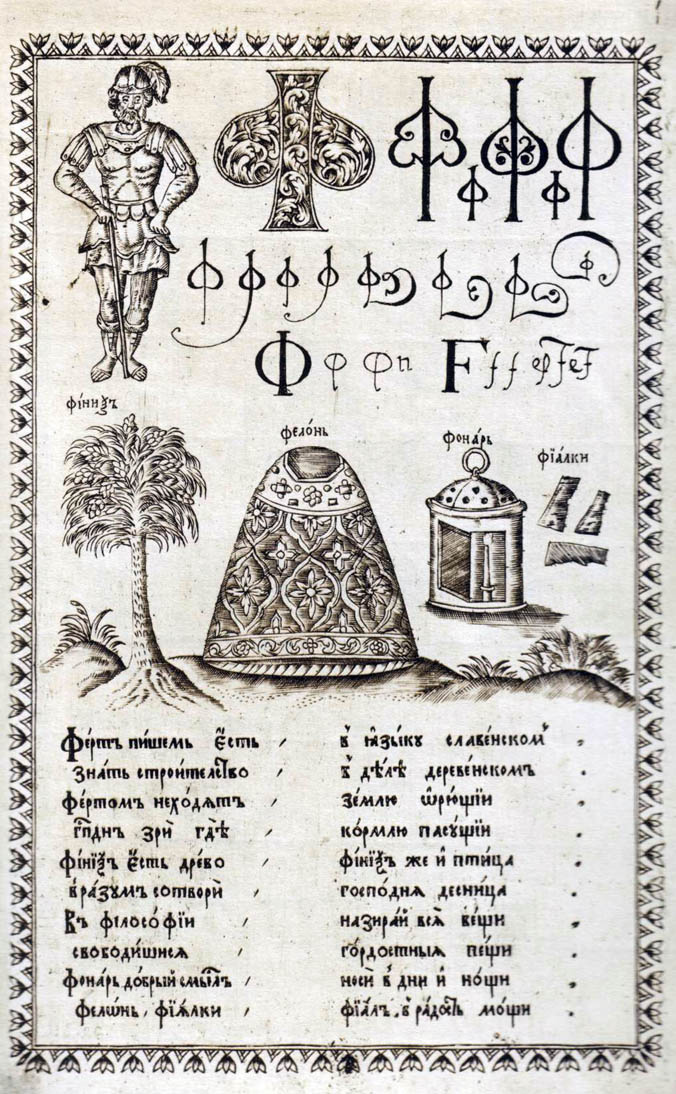 Ф Ф Ф Ф Ф Ф
Ф Ф Ф Ф Ф Ф Ф Ф
Ф ф ф п F f f
фі́ниѯъ
фело́нь
фона́рь
фїа́лки
Фе́ртъ пи́шемъ є҆́сть въ ꙗ҆зы́кꙋ славе́нскомъ
зна́ть строи́телство въ дѣ́лѣ дереве́нскомъ
фе́ртомъ нехо́дятъ зе́млю ѡ҆рю́щїи
гп҃днъ зри́ гдѣ̀ ко́рмлю пасꙋ́щїи
фі́нїѯъ є҆́сть дре́во фі́нїѯъ же и҆ пти́ца
в ра́зꙋмъ сотворѝ госпо́дня десни́ца
Въ філосо́фїи назира́й всѧ̀ ве́щи
свободи́шися го́рдостныя пе́щи
фона́рь до́брый смы́слъ носѝ в дни̑ и҆ но́щи
фело́нь, фїа́лки фїа́лъ, в ра́дость мо́щи